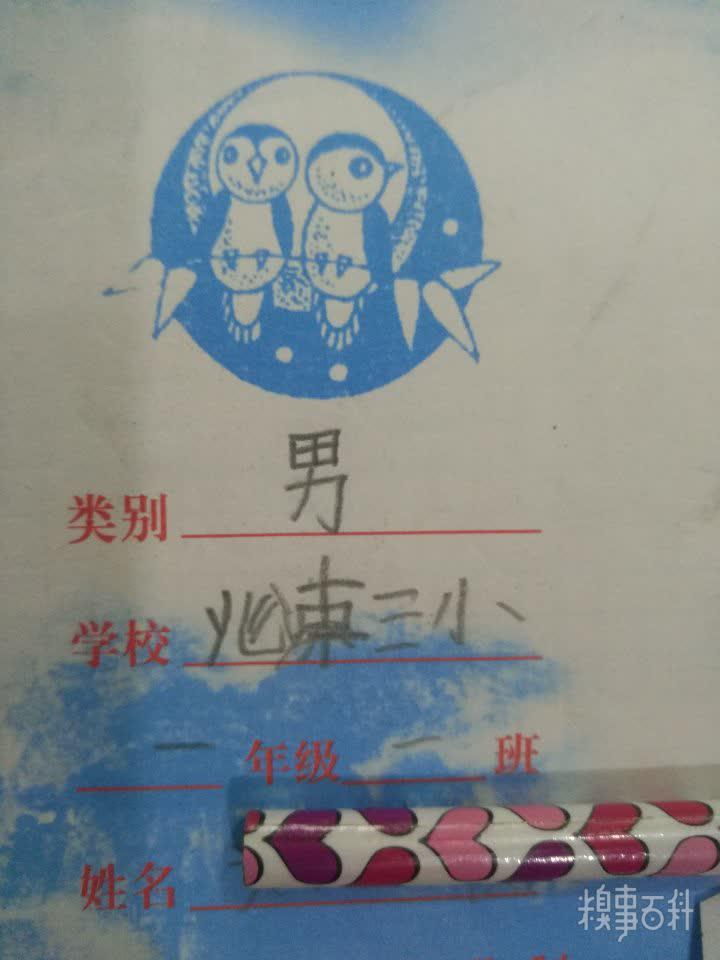 类别 男
学校 东三小
一 年级 一 班
姓名
糗事百科